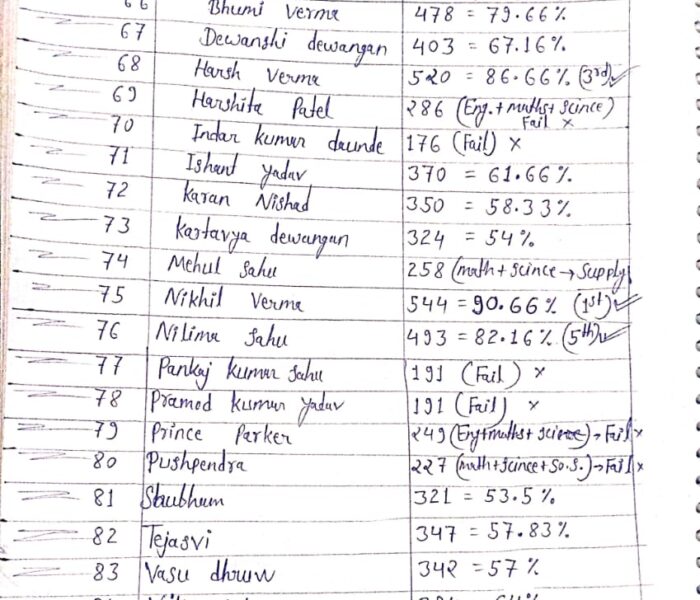 66 Bhumi Verma 478 = 79.66%
67 Dewanshi dewangan 403 = 67.16%
68 Harsh Verma 520 = 86.66% (3rd) ✓
69 Harshita Patel 286 (Eng.+maths+scince)
Fail ×
70 Indar kumar daunde 176 (Fail) ×
71 Ishant yadav 370 = 61.66%
72 Karan Nishad 350 = 58.33%
73 Kartavya dewangan 324 = 54%
74 Mehul sahu 258 (math+scince → supply
75 Nikhil Verma 544 = 90.66% (1st) ✓
76 Nilima sahu 493 = 82.16% (5th) ✓
77 Pankaj kumar sahu 191 (Fail) ×
78 Pramod kumar yadav 191 (Fail) ×
79 Prince Parker 249 (Eng+maths+scince) → Fail ×
80 Pushpendra 227 (math+scince+So.S.) → Fail ×
81 Shubhum 321 = 53.5%
82 Tejasvi 347 = 57.83%
83 Vasu dhruw 342 = 57%